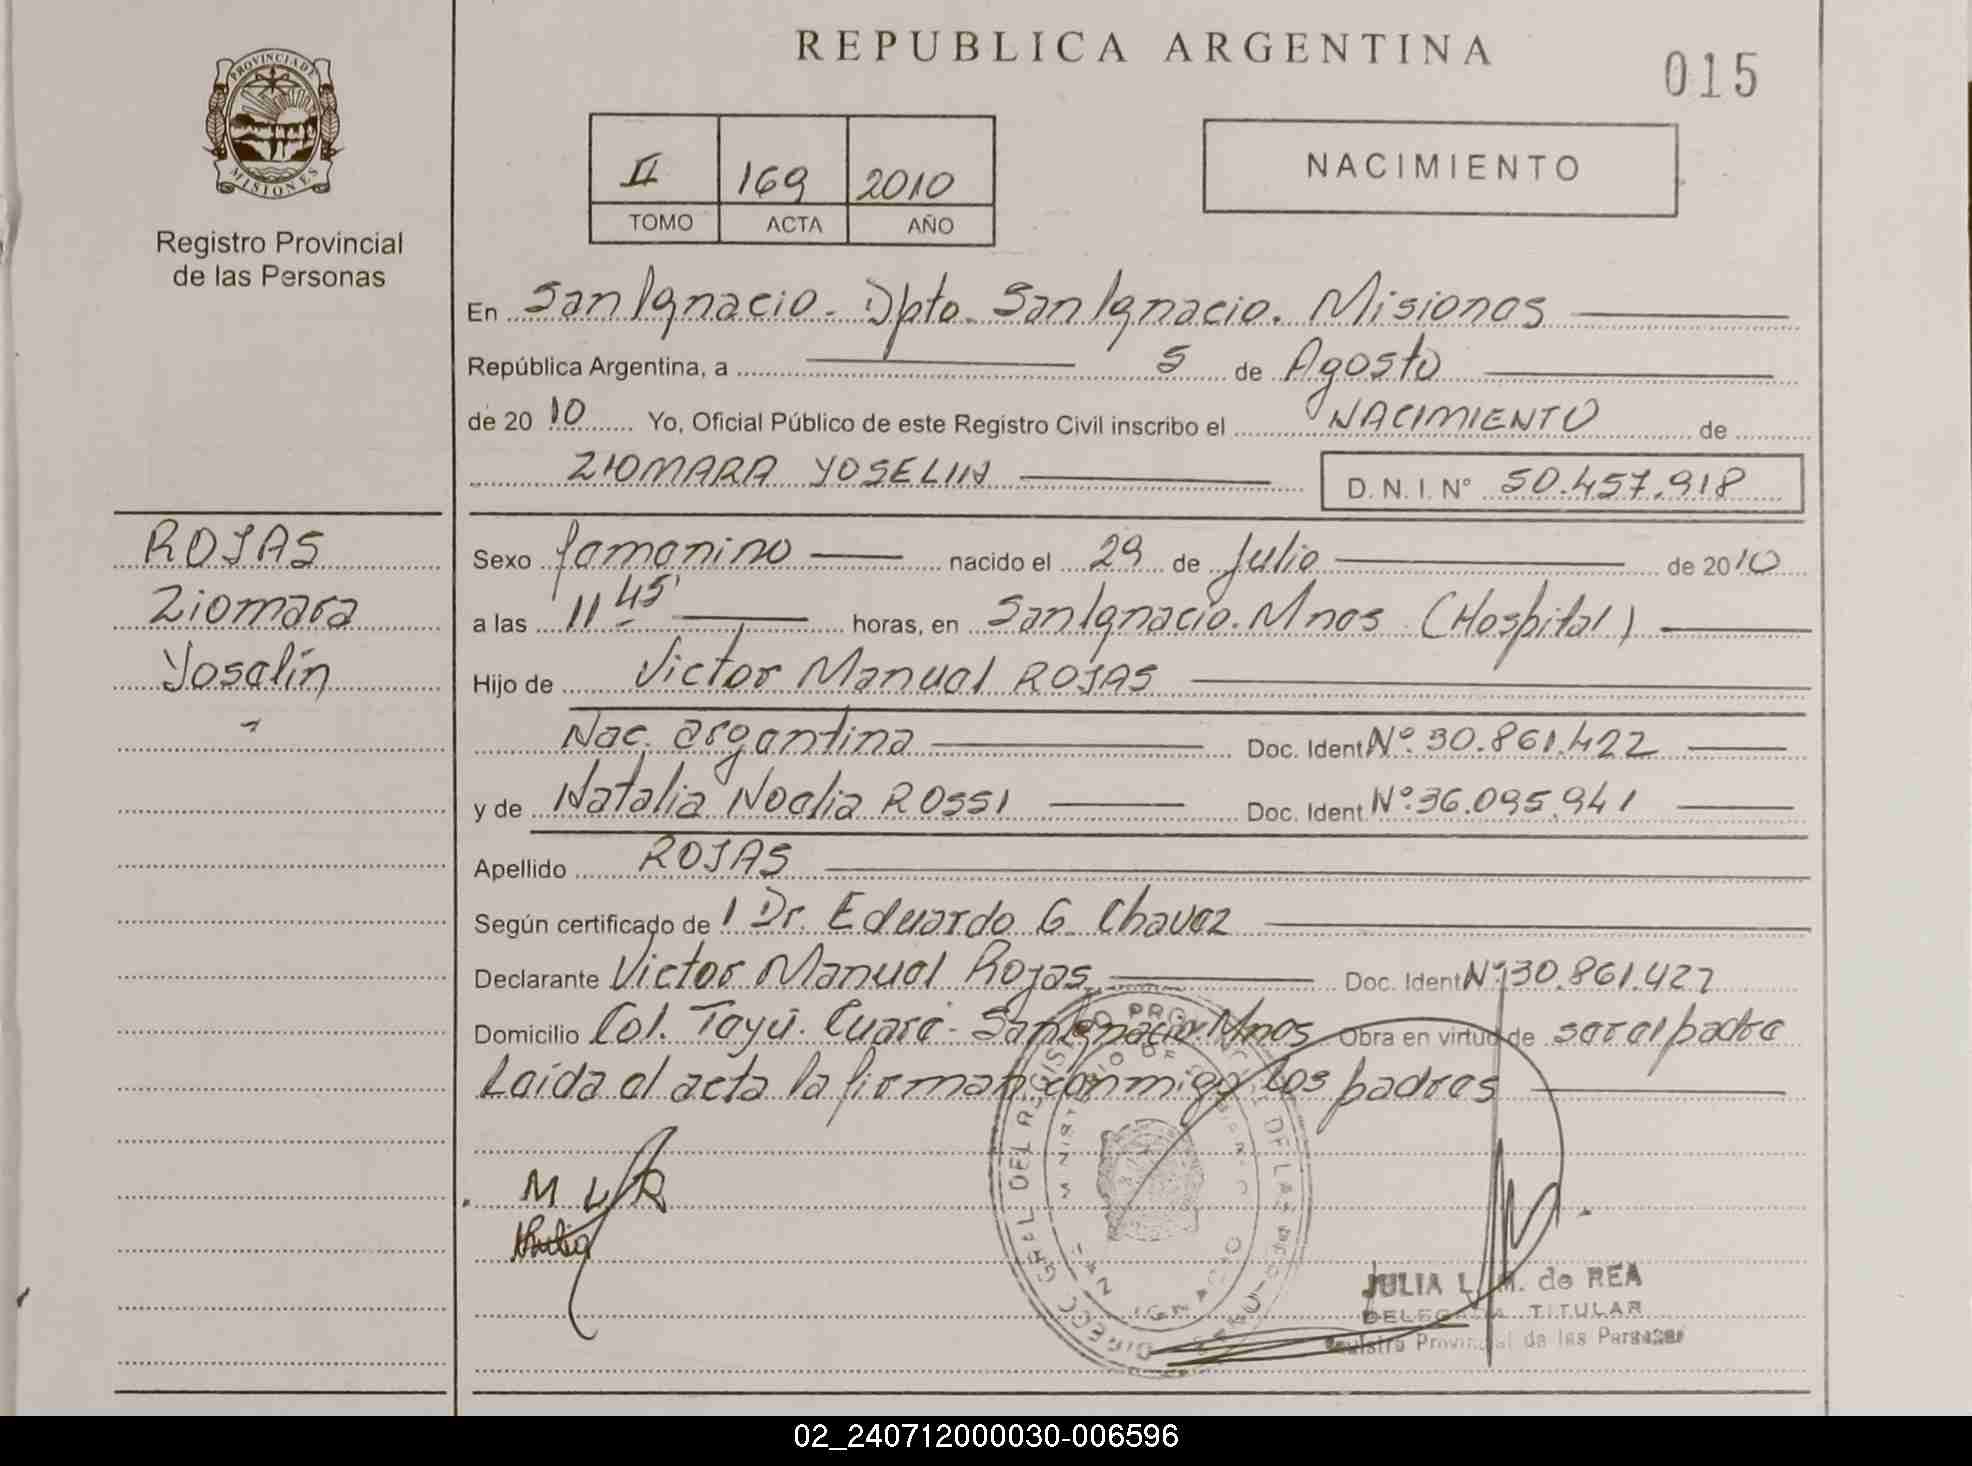 REPUBLICA ARGENTINA
015
PROVINCIA DE
MISIONES
Registro Provincial
de las Personas
II 169 2010
TOMO ACTA AÑO
NACIMIENTO
En San Ignacio. Dpto. San Ignacio. Misiones
República Argentina, a 5 de Agosto
de 2010 Yo, Oficial Público de este Registro Civil inscribo el NACIMIENTO de
ZIOMARA YOSELIN D.N.I. N° 50.457.918
ROJAS
Ziomara
Yoselín
Sexo femenino nacido el 29 de Julio de 2010
a las 11 45' horas, en San Ignacio. Mnes (Hospital)
Hijo de Victor Manuel ROJAS
Nac. argentina Doc. Ident N°. 30.861.422
y de Natalia Noelia ROSSI Doc. Ident N°. 36.095.941
Apellido ROJAS
Según certificado de l Dr. Eduardo G. Chavez
Declarante Victor Manuel Rojas Doc. Ident N° 30.861.422
Domicilio Col. Tayú. Cuaré. San Ignacio. Mnes Obra en virtud de ser el padre
Leída el acta la firman conmigo los padres
JULIA L. M. de REA
DELEGADA TITULAR
Registro Provincial de las Personas
02_240712000030-006596